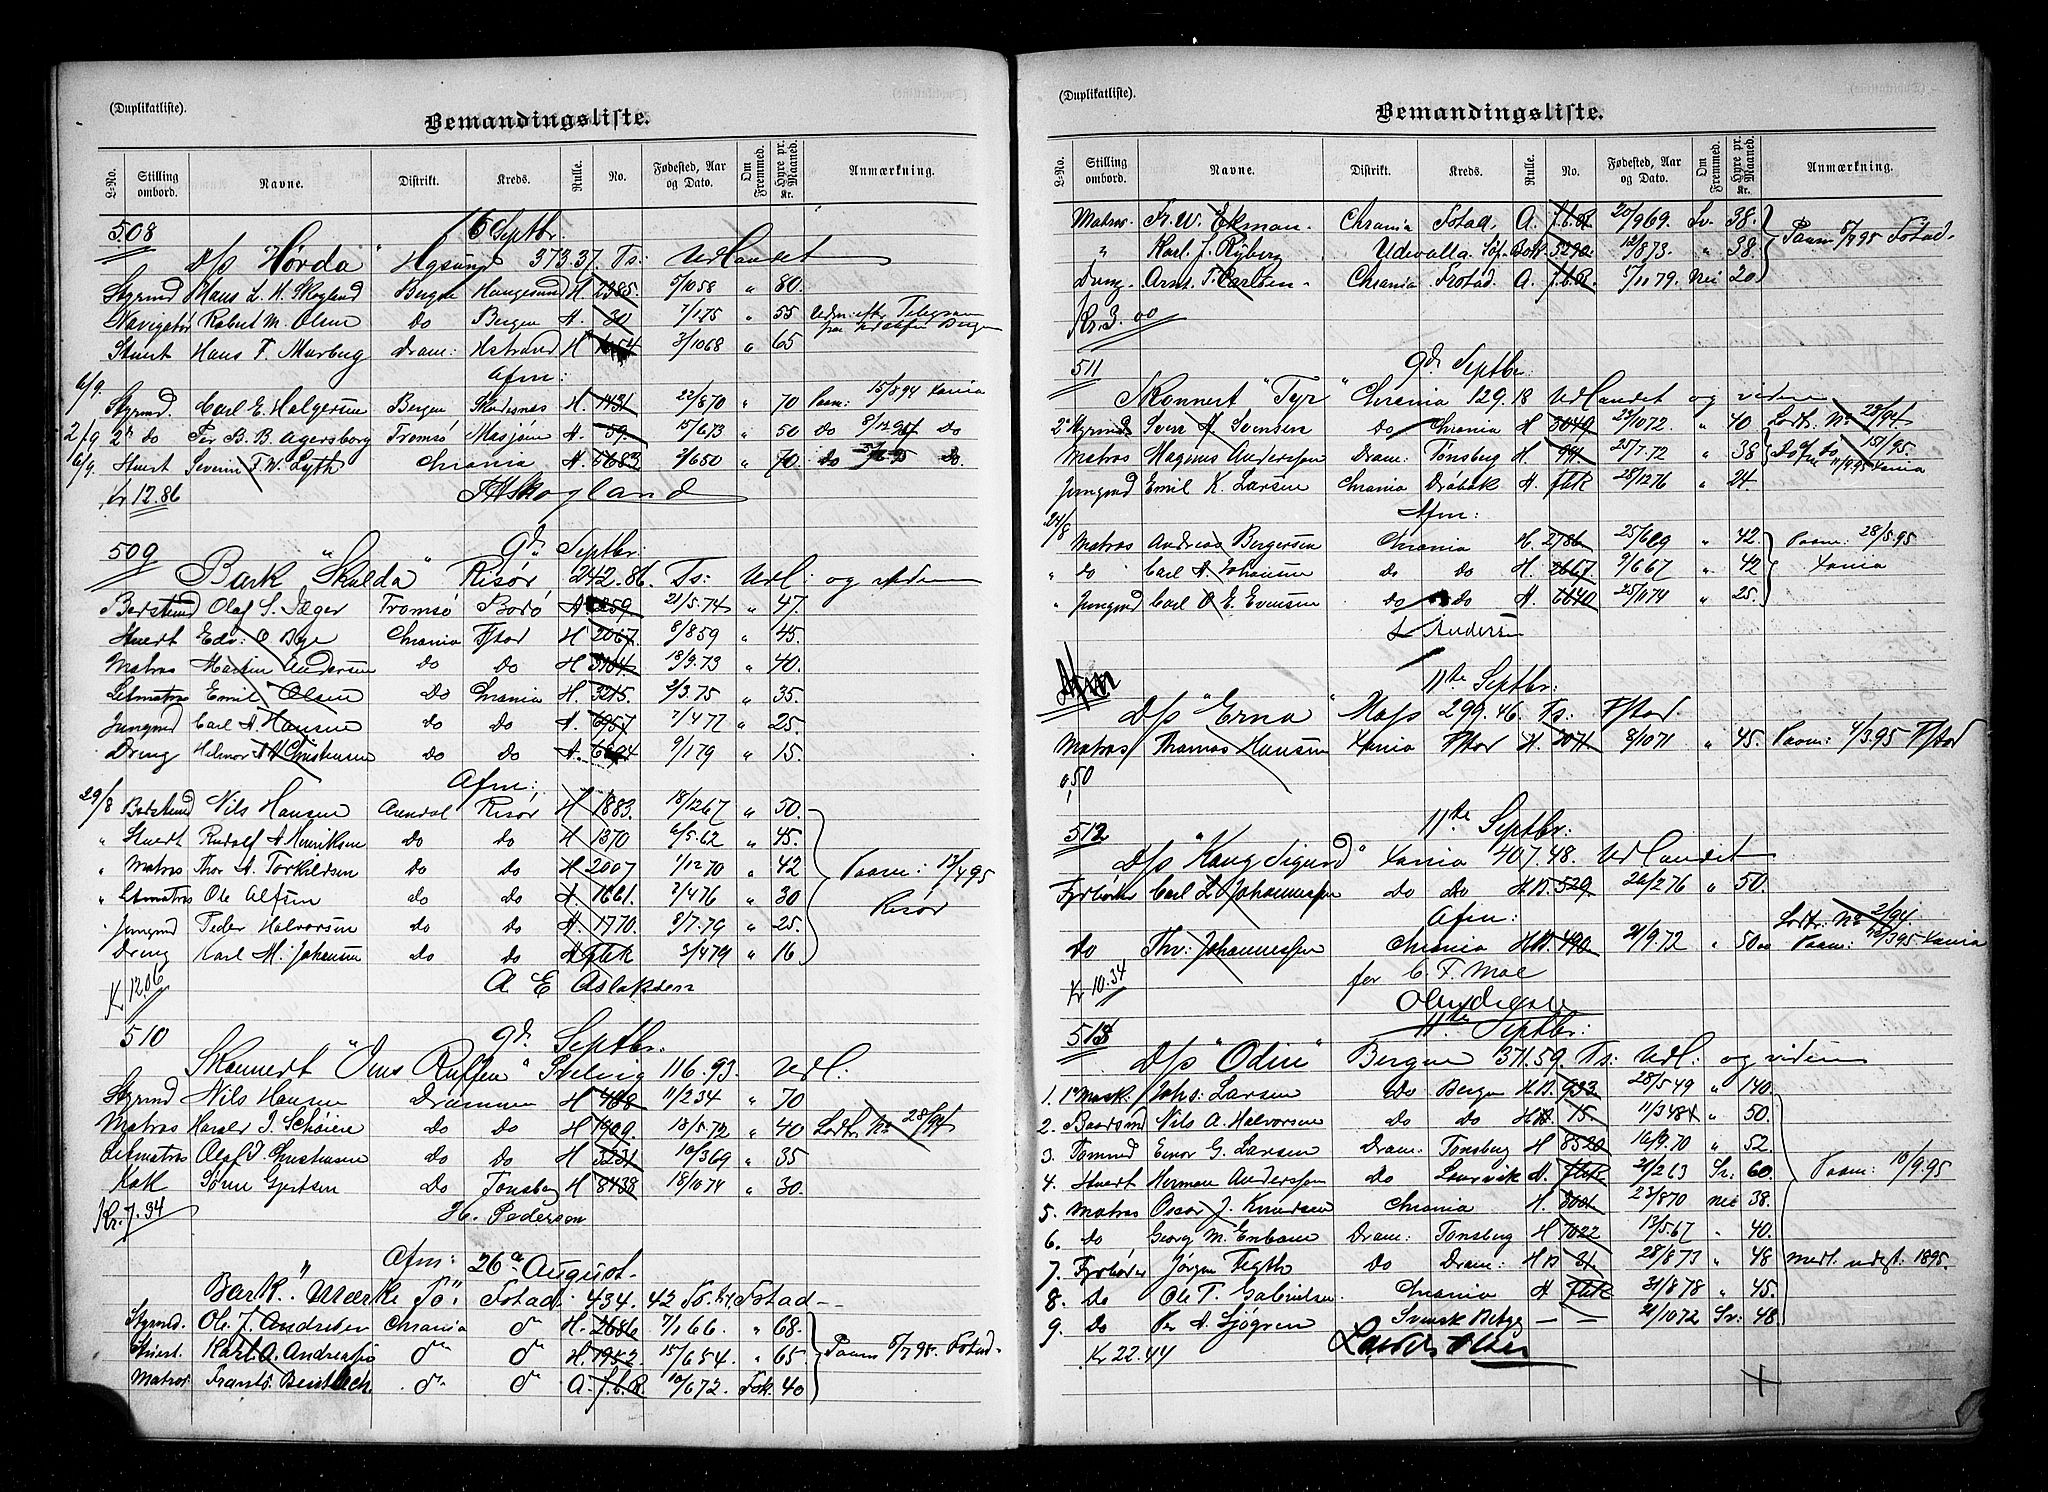 (Duplikatliste).
Bemandingsliste.
L-No. Stilling ombord. Navne. Distrikt. Kreds. Rulle. No. Fødested, Aar og Dato. Om Fremmed. Hyre pr. Maaned. Kr. Anmærkning.
508 6 Septbr.
D/s "Hørda" Hgsund 373.37. Ts: Udlandet
Styrmd Hans L. H. Skogland Bergen Haugesund H. 2385. 5/10 58 " 80.
Navigatør Robert M. Olsen do Bergen A. 30 7/1 75 " 55
Stuert Hans F. Marberg Dram: H 3/10 68 " 65
Afm:
6/9. Styrmd. Carl E. Holgersen Bergen Skudesnæs H. 1431 22/8 70 " 70 Paam: 15/8 94 Xania
2/9 2n do Per B. B. Agersborg Tromsø Mosjøen A. 59. 15/6 73 " 50 Do 8/12 94 Do
6/9. Stuert Severin F. W. Lyth Chrania A. 6683 2/6 50 " 70 Do Do.
Kr 12.86 Skogland
509 9d. Septbr:
Bark "Skulda" Risør 242.86. Ts: Udl: og videre
Olaf S. Jæger Tromsø Bodø A 259. 21/5.74 " 47.
Stuert Edv: O Bye Chrania Fstad H 2067. 8/8 59 " 45.
Matros Martin Andersen Do Do H 3104 18/9.73 " 40.
Letmatros Emil Olsen Do Chrania H. 3215. 2/3.75 " 35
Jungmd Carl A. Hansen do do A. 6957 7/4 77 " 25.
Dreng Helmer A. Christensen do do A. 6694 9/1 79 " 15.
Afm:
29/8 Nils Hansen Arendal Risør H 1883. 18/12 67 " 50.
" Stuert Rudolf A Henriksen do do H 1370 6/5.62 " 45.
" Matros Thor A. Torkildsen do do H 2007 1/12 70 " 42 Paam: 13/4 95
" Letmatros Ole Olsen do do A. 1661. 2/4 76 " 30 Risør
" Jungmd Peder Halvorsen do do A. 1770. 8/7.79 " 25.
Dreng Karl M. Johansen do do A fbk 3/4 79 " 16
Kr 12.06 A E Aslaksen
510 9d. Septbr.
Skonnert "Jens Ruffen" Svelvig 116.93. Udl.
Styrmd Nils Hansen Drammen H 488 11/2 34 " 70
Matros Harald J. Schøien do do H 1409. 18/5.72 " 40 Lodtr. No 28/94
Letmatros Olaf J. Christensen do do H 3231 10/3 69 " 35
Kok Søren Gjertsen Do Tønsberg H 8438 18/10 74 " 30.
Kr. 7.34 H. Pedersen
" Afm: 26a August.
Bark: "Mærke Sø" Fstad. 434.42 Fstad
Styrmd. Ole J. Andersen Chrania do H. 2686 7/1 66 " 68.
Stuert. Karl A. Andreassen do do H. 1952 15/6 54. " 65 Paam 5/7 95. Fstad.
Matros Frantz Bentbach do do A. f.b.R 10/6 72. Fsk. 40
(Duplikatliste).
Bemandingsliste.
L-No. Stilling ombord. Navne. Distrikt. Kreds. Rulle. No. Fødested, Aar og Dato. Om Fremmed. Hyre pr. Maaned. Kr. Anmærkning.
Matros. Fr. W. Ekman. Chrania Fstad. A. f.b.R 20/9 69. Sv. 38.
" Karl. J. Ryberg Udevalla 5292. 12/8 73. " 38. Paam 5/7 95 Fstad.
Dreng. Arnt. T. Carlsen. Chrania Frstad. A. f.b.R. 5/11 79. Nei 20
Kr. 3.00
511 9d. Septbr:
Skonnert "Tyr" Chrania 129.18 Udlandet og videre
2 Styrmd Sven A Svensen Do Chrania H 3040 23/10 72. " 40 Lodts. No 23/94
Matros Magnus Anderssen Dram: Tønsberg H. 991 25/7.72 " 38 15/1 95.
Jungmd Emil K. Larsen Chrania Drøbak A. fbk 28/12 76 " 24. 11/9 95 Xania
24/8 Afm:
Matros Andreas Bergersen Chrania H. 2786 25/6 69 " 42. Paam: 28/5.95
" do Carl A. Johansen do do H. 2667 9/6 67 " 42 Xania
" Jungmd Carl O. E. Evensen do do A. 6640 25/10 74 " 25.
Andersen
Afm 11te Septbr:
D/s "Erna" Moss 299.46 Ts: Fstad
Matros Thomas Hansen Xania Fstad H. 2071 8/10 71 " 45. Paam: 4/3.95 Fstad
0,50
512 11te Septbr:
D/s "Kong Sigurd" Xania 407.48. Udlandet
Fyrbøder Carl L. Johannessen do do H.B. 529 26/2 76 " 50.
Afm: Lodtr: No 2/94
Do Thv. Johannessen Chrania H.B. 490 21/9.72 " 50.00 Paam: 12/3 95 Xania
Kr 10.34 for C. F. Moe
513 11te Septbr:
D/s "Odin" Bergen 371.59. Ts: Udl: og videre
1. 1n Mask. Johs: Larsen do Bergen H.B. 933 28/5 49 " 140.
2. Baadsmd Nils A. Halvorsen do do H. 15. 11/3 48 " 50.
3. Tømmd Einar G. Larsen Dram: Tønsberg H 8520 16/9.70 " 52
4. Stuert Herman Anderssen do Laurvik A. fbk 21/2 63 Sv. 60. Paam: 10/9.95
5. Matros Oscar J. Knudsen Chrania H. 3001 23/8 70 nei 38.
6. Do Georg M. Eriksen Dram: Tønsberg H 7022 13/5.67 " 40.
7. Fyrbøder Jørgen Figth Do Dram: H.B 31. 28/8 73 " 48 Medl. udgt: 1895.
8. Do Ole T. Gabrielsen. Chrania A fbk 31/8 78 " 45.
9. Do Per A. Sjøgren Svensk — — 21/10 72 Sv: 48
Kr 22.44 Olsen